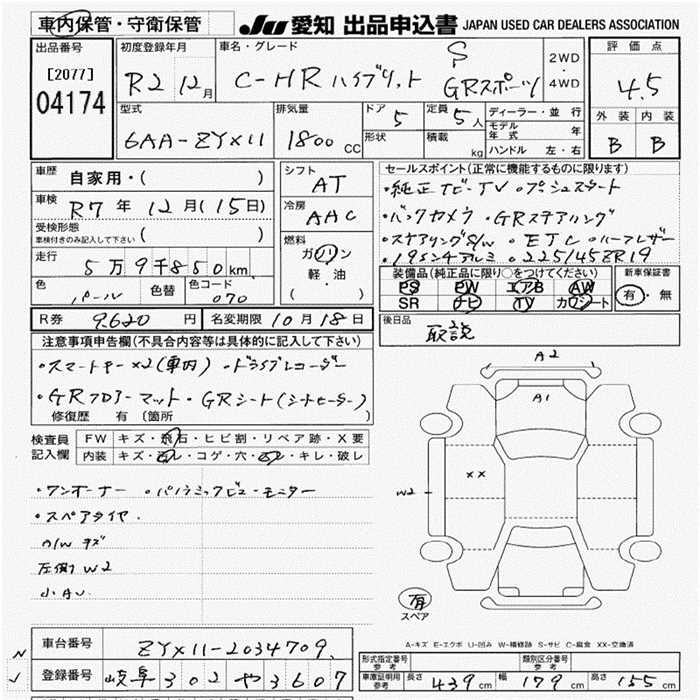 車内保管・守衛保管
JU 愛知 出品申込書 JAPAN USED CAR DEALERS ASSOCIATION
出品番号
[2077]
04174
初度登録年月
R2 12月
車名・グレード
S
C-HR ハイブリット GRスポーツ
2WD
・
4WD
評価点
4.5
外装 内装
B B
型式
6AA-ZYX11
排気量
1800 CC
ドア 5
形状
定員 5人
積載 kg
ディーラー・並行
モデル年式 年
ハンドル 左・右
車歴
自家用・( )
車検
R7年 12月(15日)
受検形態
車検付きのみ記入して下さい ( )
走行
5万9千850km
色
パール
色替
色コード
070
シフト
AT
冷房
AAC
燃料
ガソリン
軽・油
( )
セールスポイント(正常に機能するものに限ります)
・純正ナビ・TV ・プッシュスタート
・バックカメラ ・GRステアリング
・ステアリングS/W ・ETC ・ハーフレザー
・19インチアルミ ・225/45ZR19
装備品(純正品に限り○をつけてください)
PS PW エアB AW
SR ナビ TV カワシート
新車保証書
有・無
R券 9,620円
名変期限 10月18日
後日品
取説
注意事項申告欄(不具合内容等は具体的に記入して下さい)
・スマートキー×2(車内) ・ドライブレコーダー
・GRフロアーマット・GRシート(シートヒーター)
修復歴 有 〔箇所 〕
検査員記入欄
FW キズ・飛石・ヒビ割・リペア跡・X要
内装 キズ・汚レ・コゲ・穴・スレ・キレ・破レ
・ワンオーナー ・パノラミックビューモニター
・スペアタイヤ.
A/W キズ
左側 W2
小AU
A2
A1
XX
W2
有
スペア
A-キズ E-エクボ U-凹み W-補修跡 S-サビ C-腐食 XX-交換済
車台番号 ZYX11-2034709
登録番号 岐阜 302 や 3607
形式指定番号
参考
類別区分番号
参考
車庫証明用
参考
長さ 439cm 幅 179cm 高さ 155cm